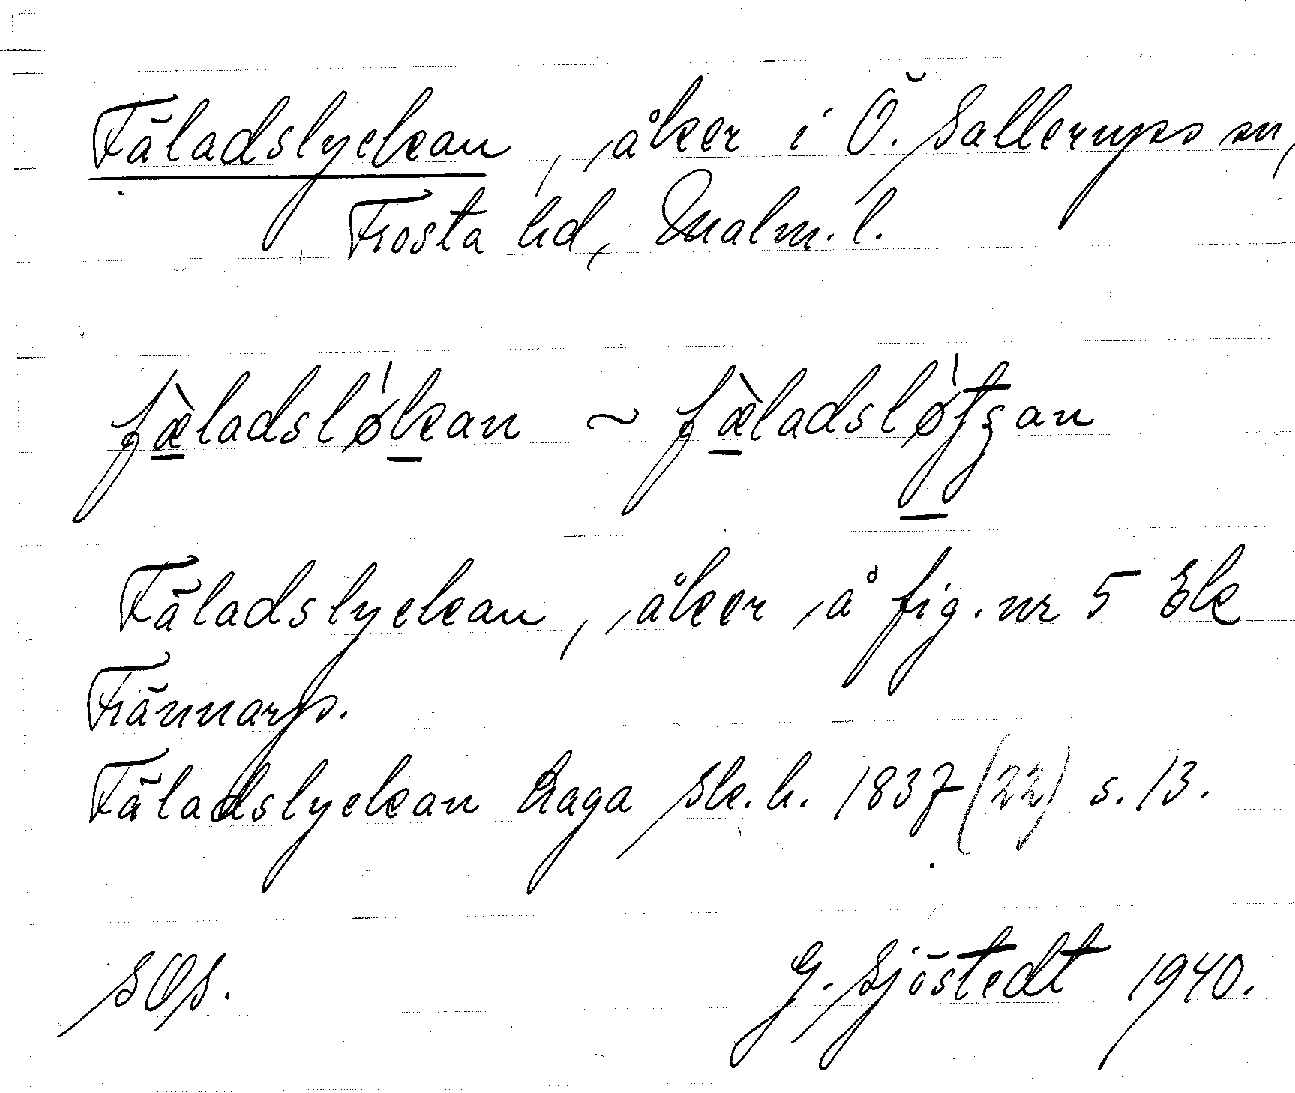 Fäladslyckan, åker i Ö. Sallerups sn,
Frosta hd, Malm. l.
fæ̀ladsløkan ~ fæ̀ladsløtʂan
Fäladslyckan, åker å fig. nr 5 Ek
Trännarp.
Fäladslyckan Laga sk.h. 1837 (22) s. 13.
SOS.
G. Sjöstedt 1940.